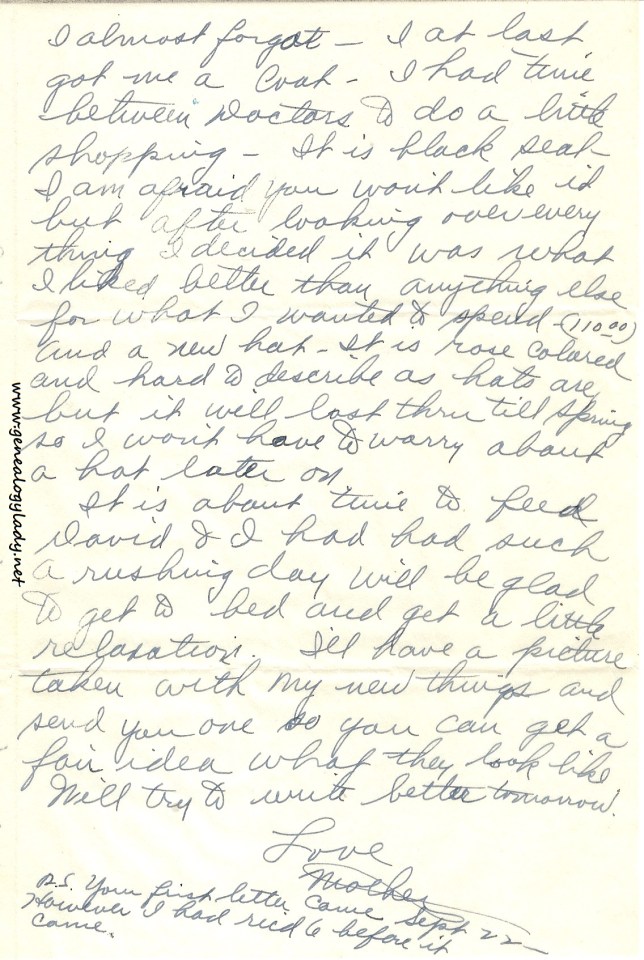 I almost forgot — I at last
got me a Coat - I had time
between Doctors to do a little
shopping — It is black seal
I am afraid you wont like it
but after looking over every
thing I decided it was what
I liked better than anything else
for what I wanted to spend - (110.00)
and a new hat - It is rose colored
and hard to describe as hats are
but it will last thru till spring
so I wont have to worry about
a hat later on
It is about time to feed
David & I had had such
a rushing day will be glad
to get to bed and get a little
relaxation. I'll have a picture
taken with my new things and
send you one so you can get a
fair idea what they look like
Will try to write better tomorrow.
Love
Mother
P.S. Your first letter came Sept 22 —
However I had rec'd 6 before it
came.
www.genealogylady.net